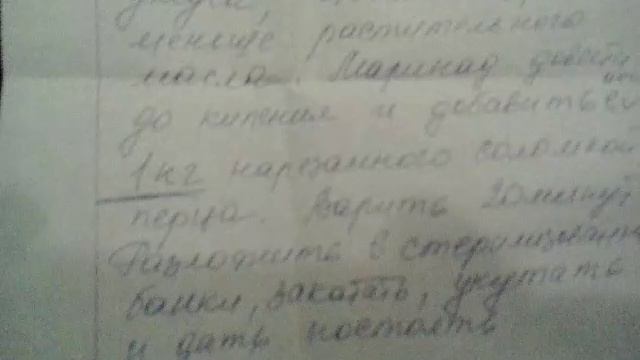 меньше растительного
масла. Маринад довести
до кипения и добавить
1 кг нарезанного соломкой
перца. Варить 20 минут
Разложить в стерилизованн
банки, закатать, укутать
и дать постоять